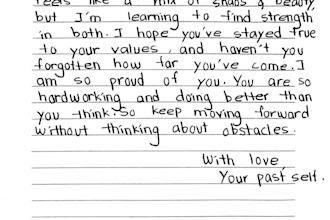 feels like a mix of chaos & beauty,
but I'm learning to find strength
in both. I hope you've stayed true
to your values, and haven't you
forgotten how far you've come. I
am so proud of you. You are so
hardworking and doing better than
you think. So keep moving forward
without thinking about obstacles.
With love,
Your past self.